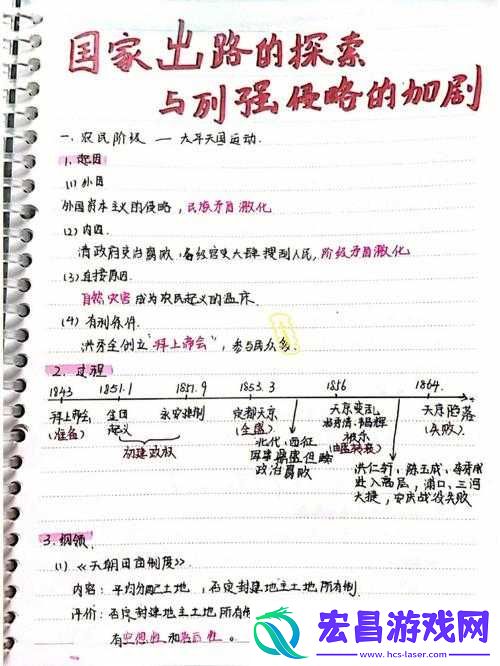 国家出路的探索
与列强侵略的加剧
一、农民阶级 — 太平天国运动.
1. 起因
(1) 外因
外国资本主义的侵略，民族矛盾激化
(2) 内因.
清政府吏治腐败，各级官吏大肆搜刮人民，阶级矛盾激化
(3) 直接原因
自然灾害成为农民起义的温床.
(4) 有利条件.
洪秀全创立"拜上帝会"，参与民众多.
2. 过程
1843 1851.1 1851.9 1853.3 1856 1864.
拜上帝会 金田 永安建制 定都天京 天京变乱 天京陷落
(准备) 起义 (全盛) 杨秀清、韦昌辉 (失败)
初建政权 北伐、西征 被杀
军事 但 (由盛转衰)
政治腐败 洪仁玕，陈玉成、李秀成
进入 层，浦口、三河
大捷，安庆战役失败
3. 纲领
(1) 《天朝田亩制度》.
内容：平均分配土地，否定封建地主土地所有制
评价：否定封建地主土地所有制
有空想性和落后性。
宏昌游戏网
www.hcs-laser.com